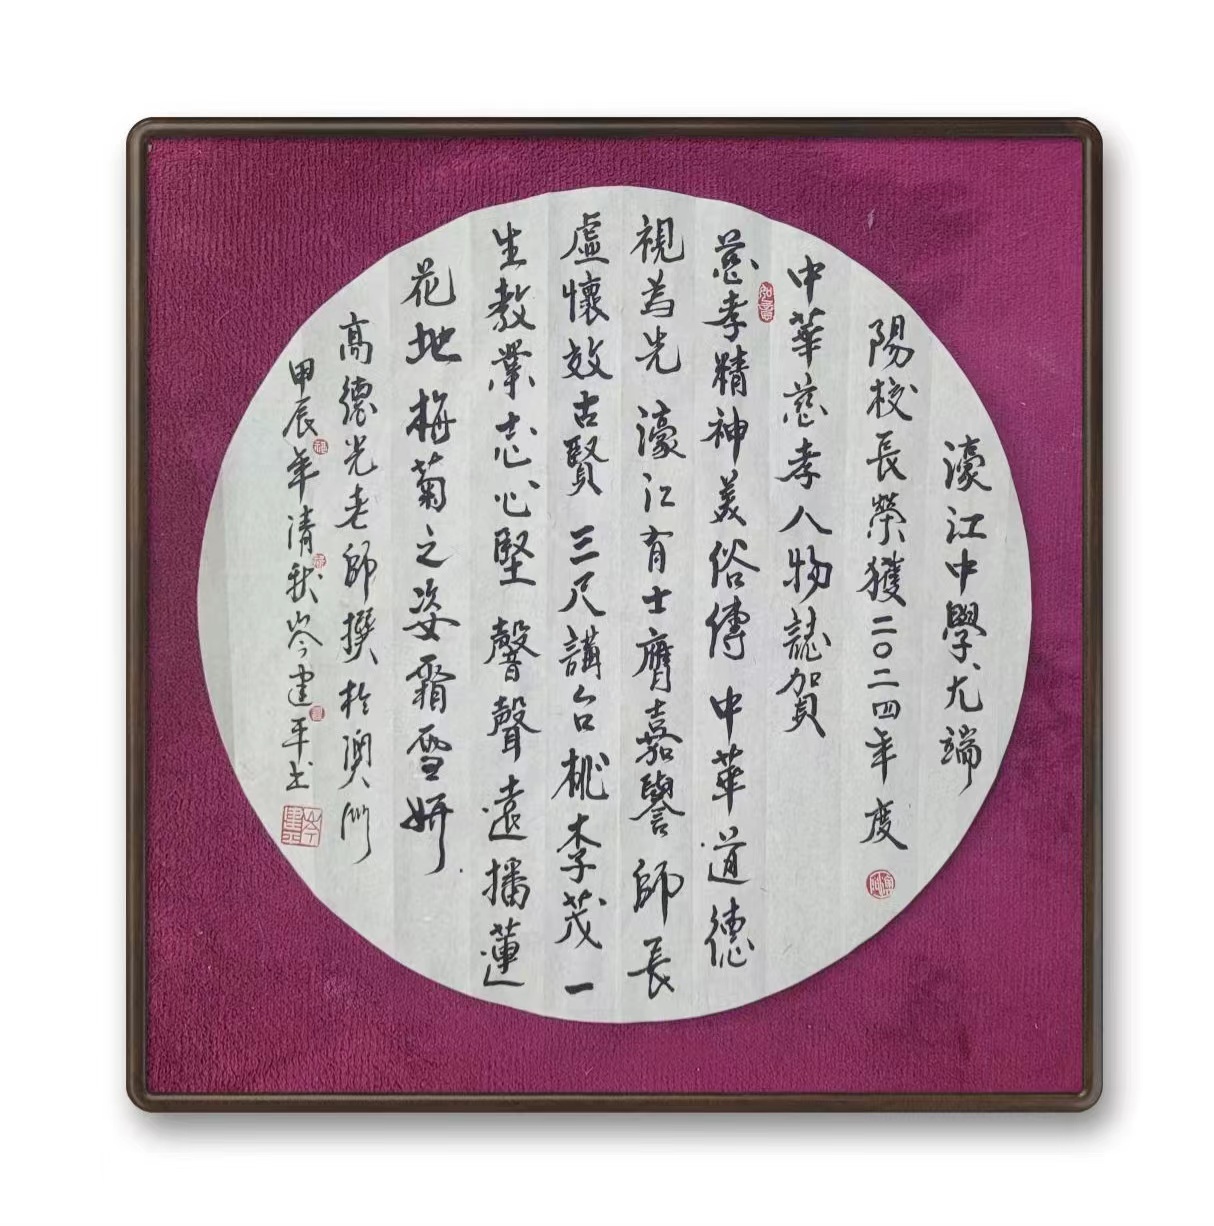 濠江中學尤端
陽校長榮獲二〇二四年度
中華慈孝人物誌賀
慈孝精神美俗傳 中華道德
視為先 濠江有士膺嘉譽 師長
虛懷效古賢 三尺講台桃李茂 一
生教業志心堅 馨聲遠播蓮
花地 梅菊之姿霜雪妍
高德光老師撰於澳門
甲辰年清秋岑建平书